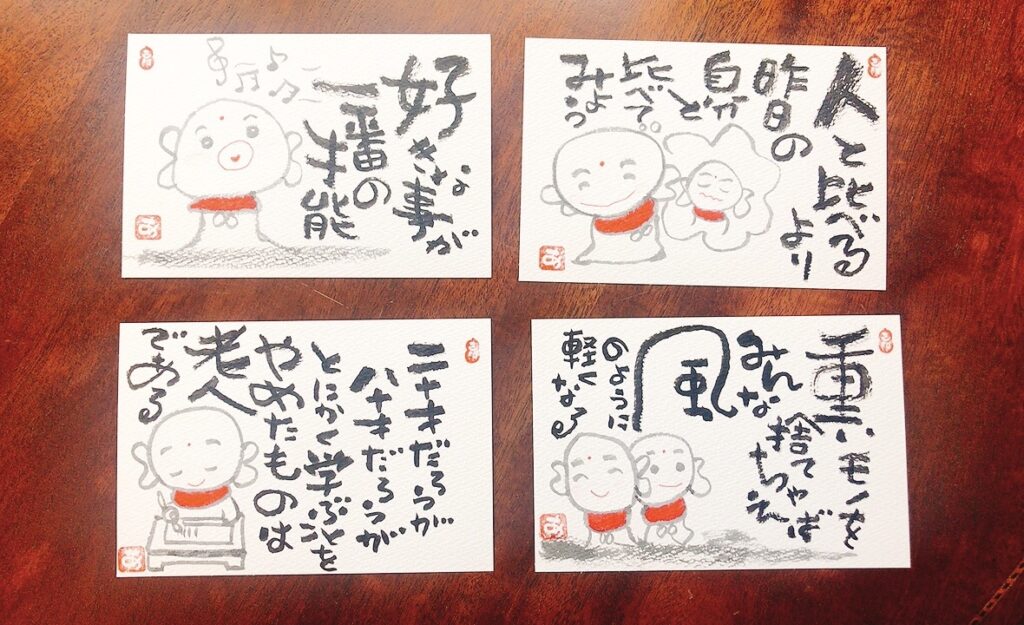 好きな事が
一番の
才能
人と比べる
より
昨日の
自分と
比べて
みよう
二十才だろうが
八十才だろうが
とにかく学ぶことを
やめたものは
老人
である
重いモノを
みんな
捨てちゃえば
風
のように
軽くなる